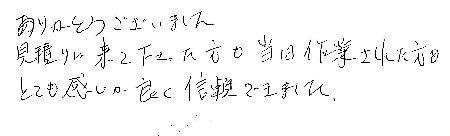 ありがとうございました
見積りに来て下さった方も当日作業された方も
とても感じが良く信頼できました。
.....